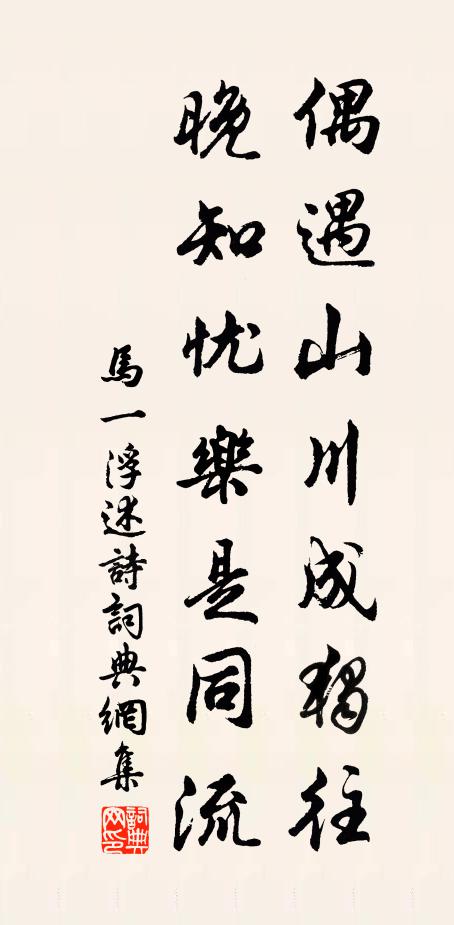 偶遇山川成獨往
晚知忧樂是同流
馬一浮述詩詞典網集
詞典網印